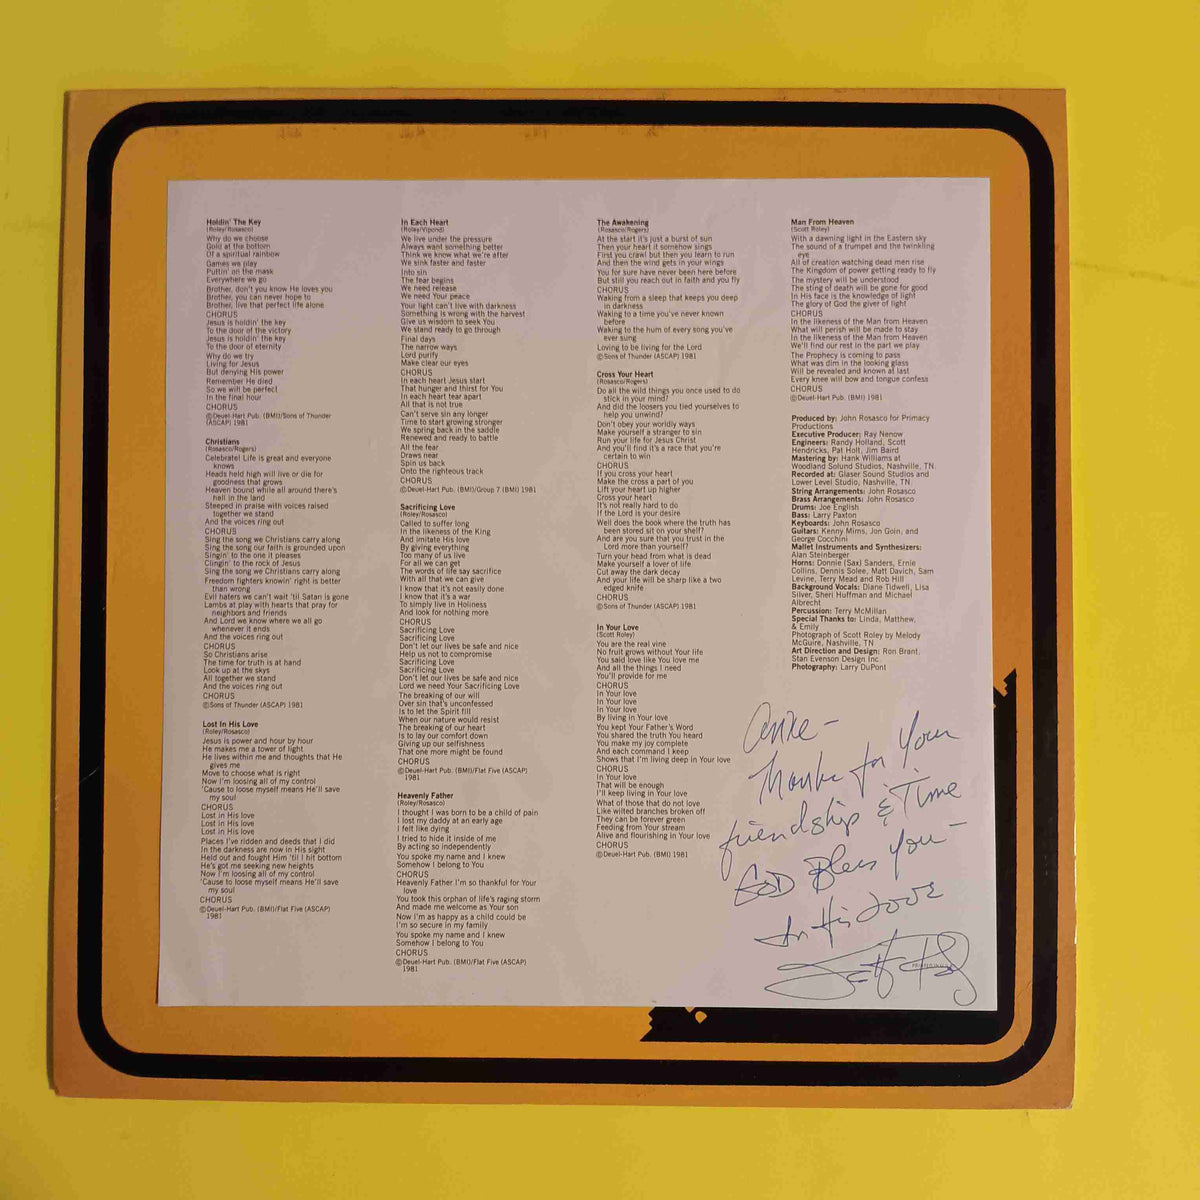 Holdin' The Key
(Roley/Rosasco)
Why do we choose
Gold at the bottom
Of a spiritual rainbow
Games we play
Puttin' on the mask
Everywhere we go
Brother, don't you know He loves you
Brother, you can never hope to
Brother, live that perfect life alone
CHORUS
Jesus is holdin' the key
To the door of the victory
Jesus is holdin' the key
To the door of eternity
Why do we try
Living for Jesus
But denying His power
Remember He died
So we will be perfect
In the final hour
CHORUS
©Deuel-Hart Pub. (BMI)/Sons of Thunder
(ASCAP) 1981
Christians
(Rosasco/Rogers)
Celebrate! Life is great and everyone
knows
Heads held high will live or die for
goodness that grows
Heaven bound while all around there's
hell in the land
Steeped in praise with voices raised
together we stand
And the voices ring out
CHORUS
Sing the song we Christians carry along
Sing the song our faith is grounded upon
Singin' to the one it pleases
Clingin' to the rock of Jesus
Sing the song we Christians carry along
Freedom fighters knowin' right is better
than wrong
Evil haters we can't wait 'til Satan is gone
Lambs at play with hearts that pray for
neighbors and friends
And Lord we know where we all go
whenever it ends
And the voices ring out
CHORUS
So Christians arise
The time for truth is at hand
Look up at the skys
All together we stand
And the voices ring out
CHORUS
©Sons of Thunder (ASCAP) 1981
Lost In His Love
(Roley/Rosasco)
Jesus is power and hour by hour
He makes me a tower of light
He lives within me and thoughts that He
gives me
Move to choose what is right
Now I'm loosing all of my control
'Cause to loose myself means He'll save
my soul
CHORUS
Lost in His love
Lost in His love
Lost in His love
Places I've ridden and deeds that I did
In the darkness are now in His sight
Held out and fought Him 'til I hit bottom
He's got me seeking new heights
Now I'm loosing all of my control
'Cause to loose myself means He'll save
my soul
CHORUS
©Deuel-Hart Pub. (BMI)/Flat Five (ASCAP)
1981
In Each Heart
(Roley/Vipond)
We live under the pressure
Always want something better
Think we know what we're after
We sink faster and faster
Into sin
The fear begins
We need release
We need Your peace
Your light can't live with darkness
Something is wrong with the harvest
Give us wisdom to seek You
We stand ready to go through
Final days
The narrow ways
Lord purify
Make clear our eyes
CHORUS
In each heart Jesus start
That hunger and thirst for You
In each heart tear apart
All that is not true
Can't serve sin any longer
Time to start growing stronger
We spring back in the saddle
Renewed and ready to battle
All the fear
Draws near
Spin us back
Onto the righteous track
CHORUS
©Deuel-Hart Pub. (BMI)/Group 7 (BMI) 1981
Sacrificing Love
(Roley/Rosasco)
Called to suffer long
In the likeness of the King
And imitate His love
By giving everything
Too many of us live
For all we can get
The words of life say sacrifice
With all that we can give
I know that it's not easily done
I know that it's a war
To simply live in Holiness
And look for nothing more
CHORUS
Sacrificing Love
Sacrificing Love
Don't let our lives be safe and nice
Help us not to compromise
Sacrificing Love
Sacrificing Love
Don't let our lives be safe and nice
Lord we need Your Sacrificing Love
The breaking of our will
Over sin that's unconfessed
Is to let the Spirit fill
When our nature would resist
The breaking of our heart
Is to lay our comfort down
Giving up our selfishness
That one more might be found
CHORUS
©Deuel-Hart Pub. (BMI)/Flat Five (ASCAP)
1981
Heavenly Father
(Roley/Rosasco)
I thought I was born to be a child of pain
I lost my daddy at an early age
I felt like dying
I tried to hide it inside of me
By acting so independently
You spoke my name and I knew
Somehow I belong to You
CHORUS
Heavenly Father I'm so thankful for Your
love
You took this orphan of life's raging storm
And made me welcome as Your son
Now I'm as happy as a child could be
I'm so secure in my family
You spoke my name and I knew
Somehow I belong to You
CHORUS
©Deuel-Hart Pub. (BMI)/Flat Five (ASCAP)
1981
The Awakening
(Rosasco/Rogers)
At the start it's just a burst of sun
Then your heart it somehow sings
First you crawl but then you learn to run
And then the wind gets in your wings
You for sure have never been here before
But still you reach out in faith and you fly
CHORUS
Waking from a sleep that keeps you deep
in darkness
Waking to a time you've never known
before
Waking to the hum of every song you've
ever sung
Loving to be living for the Lord
©Sons of Thunder (ASCAP) 1981
Cross Your Heart
(Rosasco/Rogers)
Do all the wild things you once used to do
stick in your mind?
And did the loosers you tied yourselves to
help you unwind?
Don't obey your worldly ways
Make yourself a stranger to sin
Run your life for Jesus Christ
And you'll find it's a race that you're
certain to win
CHORUS
If you cross your heart
Make the cross a part of you
Lift your heart up higher
Cross your heart
It's not really hard to do
If the Lord is your desire
Well does the book where the truth has
been stored sit on your shelf?
And are you sure that you trust in the
Lord more than yourself?
Turn your head from what is dead
Make yourself a lover of life
Cut away the dark decay
And your life will be sharp like a two
edged knife
CHORUS
©Sons of Thunder (ASCAP) 1981
In Your Love
(Scott Roley)
You are the real vine
No fruit grows without Your life
You said love like You love me
And all the things I need
You'll provide for me
CHORUS
In Your love
In Your love
In Your love
By living in Your love
You kept Your Father's Word
You shared the truth You heard
You make my joy complete
And each command I keep
Shows that I'm living deep in Your love
CHORUS
In Your love
That will be enough
I'll keep living in Your love
What of those that do not love
Like wilted branches broken off
They can be forever green
Feeding from Your stream
Alive and flourishing in Your love
CHORUS
©Deuel-Hart Pub. (BMI) 1981
Man From Heaven
(Scott Roley)
With a dawning light in the Eastern sky
The sound of a trumpet and the twinkling
eye
All of creation watching dead men rise
The Kingdom of power getting ready to fly
The mystery will be understood
The sting of death will be gone for good
In His face is the knowledge of light
The glory of God the giver of light
CHORUS
In the likeness of the Man from Heaven
What will perish will be made to stay
In the likeness of the Man from Heaven
We'll find our rest in the part we play
The Prophecy is coming to pass
What was dim in the looking glass
Will be revealed and known at last
Every knee will bow and tongue confess
CHORUS
©Deuel-Hart Pub. (BMI) 1981
Produced by: John Rosasco for Primacy
Productions
Executive Producer: Ray Nenow
Engineers: Randy Holland, Scott
Hendricks, Pat Holt, Jim Baird
Mastering by: Hank Williams at
Woodland Solund Studios, Nashville, TN
Recorded at: Glaser Sound Studios and
Lower Level Studio, Nashville, TN
String Arrangements: John Rosasco
Brass Arrangements: John Rosasco
Drums: Joe English
Bass: Larry Paxton
Keyboards: John Rosasco
Guitars: Kenny Mims, Jon Goin, and
George Cocchini
Mallet Instruments and Synthesizers:
Alan Steinberger
Horns: Donnie (Sax) Sanders, Ernie
Collins, Dennis Solee, Matt Davich, Sam
Levine, Terry Mead and Rob Hill
Background Vocals: Diane Tidwell, Lisa
Silver, Sheri Huffman and Michael
Albrecht
Percussion: Terry McMillan
Special Thanks to: Linda, Matthew,
& Emily
Photograph of Scott Roley by Melody
McGuire, Nashville, TN
Art Direction and Design: Ron Brant,
Stan Evenson Design Inc.
Photography: Larry DuPont
Thanks for Your
friendship & Time
GOD Bless You -
In His Love